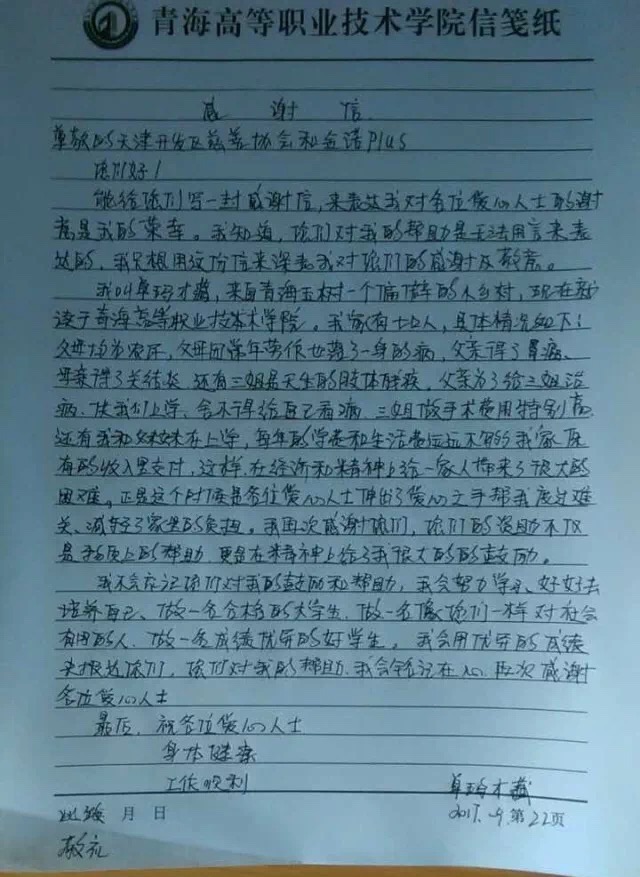 青海高等职业技术学院信笺纸
感 谢 信
尊敬的天津开发区慈善协会和金诺Plus
你们好！
能给你们写一封感谢信，来表达我对各位爱心人士的谢
意是我的荣幸。我知道，你们对我的帮助是无法用言来表
达的，我只想用这份信来深表我对你们的感谢及敬意。
我叫卓玛才藏，来自青海玉树一个偏僻的小乡村，现在就
读于青海高等职业技技术学院。我家有七口人，具体情况如下：
父母均为农民，父母因常年劳作也落了一身的病，父亲得了胃病、
母亲得了关结炎，还有三姐是天生的肢体残疾，父亲为了给三姐治
病，供我们上学，舍不得给自己看病，三姐做手术费用特别高，
还有我和妹妹在上学，每年的学费和生活费远远不够的我家原
有的收入里支付，这样，在经济和精神上给一家人带来了很大的
困难。正是这个时候是各位爱心人士伸出了爱心之手帮我度过难
关、减轻了家里的负担。我再次感谢你们，你们的资助不仅
是物质上的帮助，更是在精神上给了我很大的的鼓励。
我不会忘记你们对我的鼓励和帮助，我会努力学习、好好去
培养自己、做一名合格的大学生，做一名像你们一样对社会
有用的人，做一名成绩优异的好学生。我会用优异的成绩
来报达你们，你们对我的帮助，我会牢记在心，再次感谢
各位爱心人士
最后，祝各位爱心人士
身体健康
工作顺利
卓玛才藏
此致 月 日 2017.9.第22页
敬礼